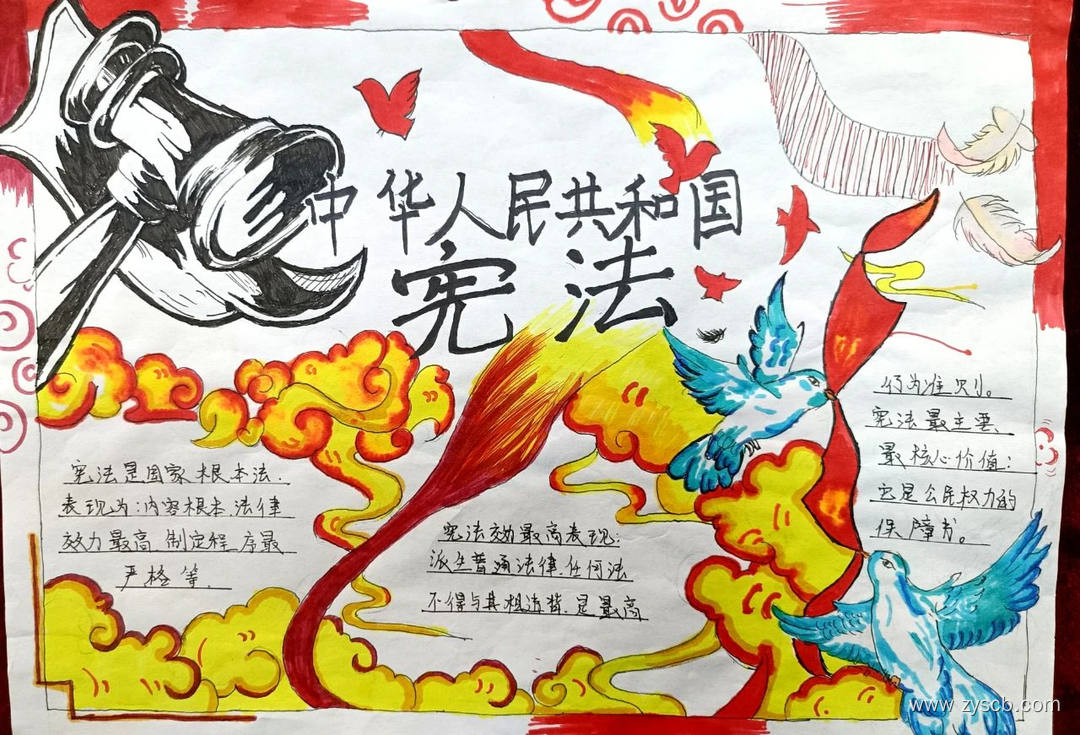 中华人民共和国
宪法
宪法是国家根本法.
表现为:内容根本.法律
效力最高.制定程序最
严格等.
宪法效力最高表现:
派生普通法律.任何法
不得与其相违背.是最高
行为准则。
宪法最主要、
最核心价值:
它是公民权力的
保障书。
www.zyscb.com